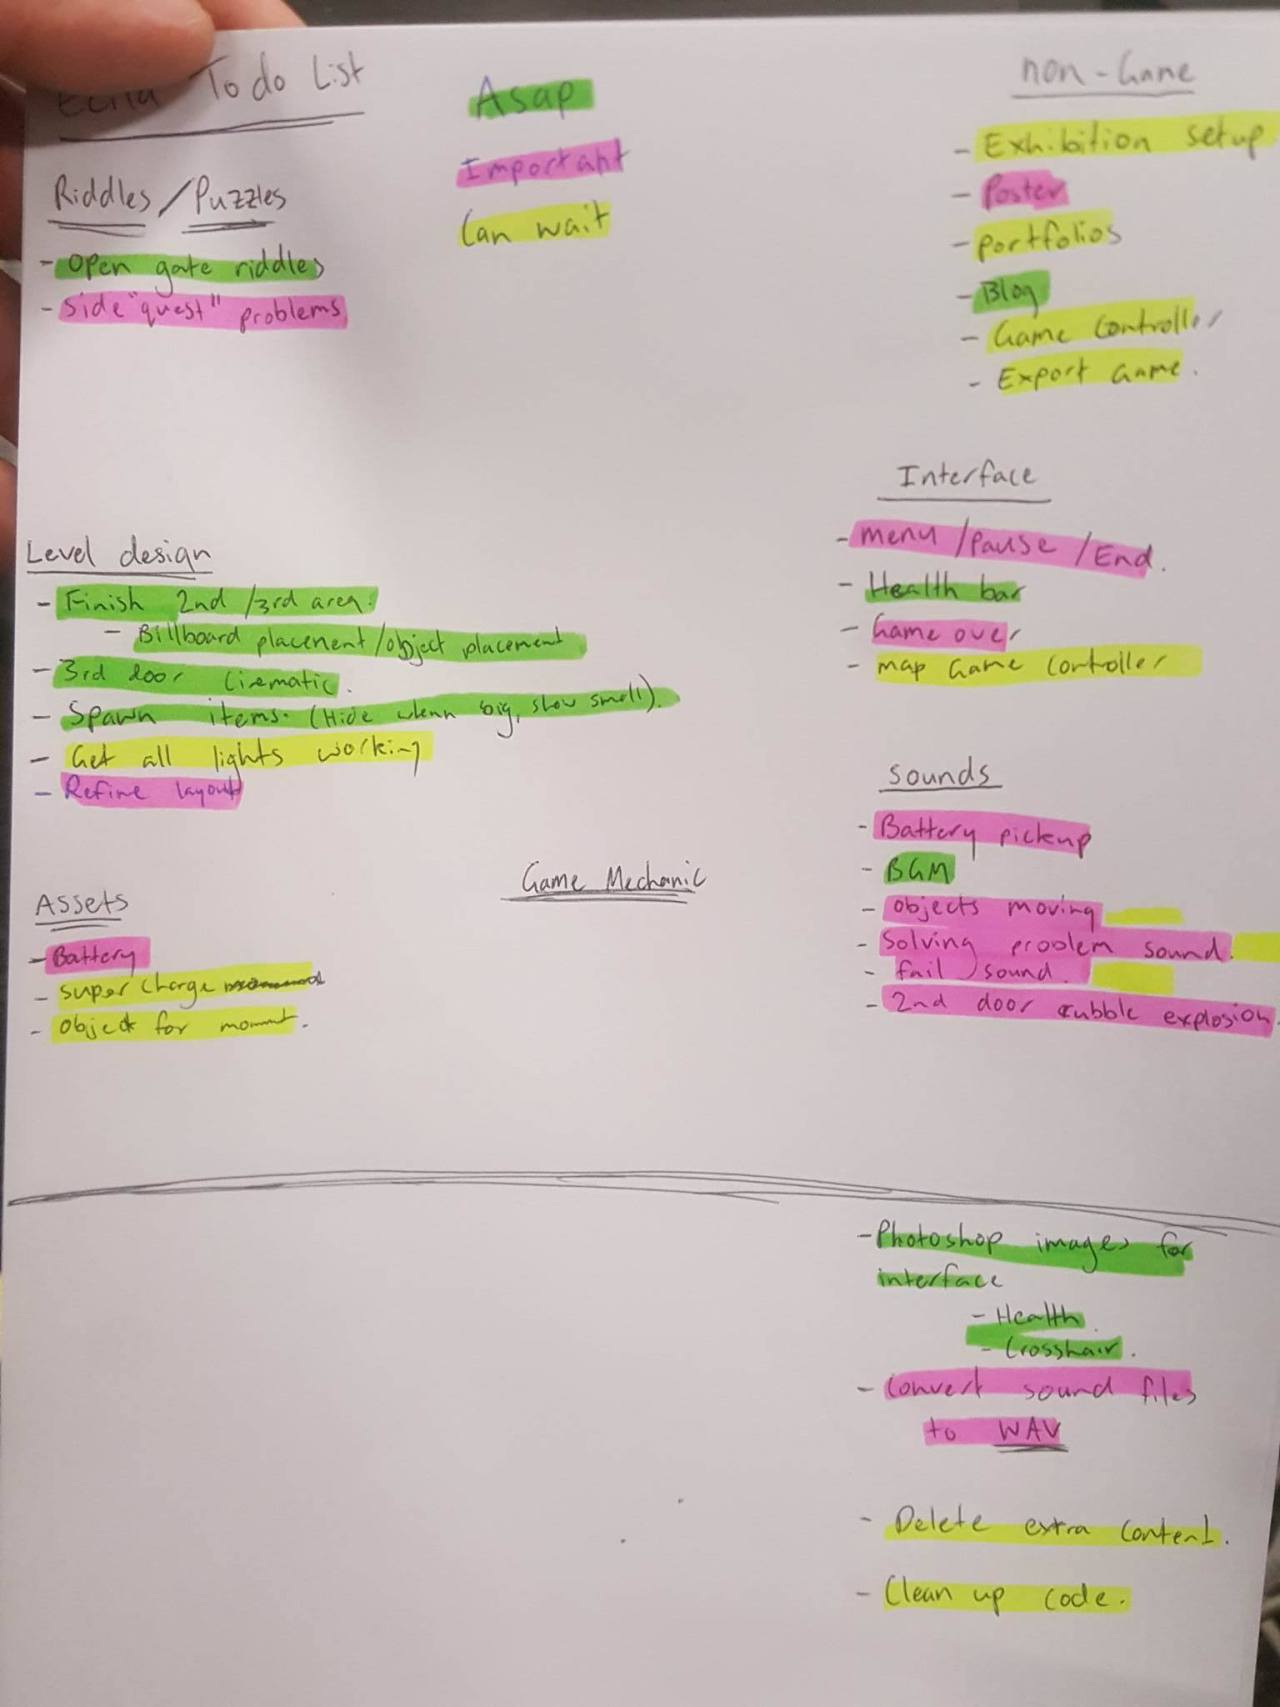 To do List
Asap
Important
Can wait
Riddles / Puzzles
- Open gate riddles
- Side "quest" problems
Level design
- Finish 2nd / 3rd area.
- Billboard placement / object placement
- 3rd door Cinematic.
- Spawn items. (Hide when big, show small).
- Get all lights working
- Refine layout
Assets
- Battery
- super charge
- Object for
Game Mechanic
non-Game
- Exhibition setup
- Poster
- portfolios
- Blog
- Game Controller
- Export Game.
Interface
- menu / Pause / End.
- Health bar
- Game over
- map Game Controller
Sounds
- Battery pickup
- BGM
- objects moving
- Solving problem sound.
- fail sound.
- 2nd door rubble explosion
- Photoshop images for
interface
- Health.
- Crosshair.
- Convert sound files
to WAV
- Delete extra content.
- Clean up code.